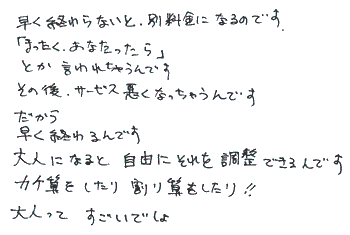 早く終わらないと、別料金になるのです
「まったく、あなたったら」
とか言われちゃうんです
その後、サービス悪くなっちゃうんです
だから
早く終わるんです
大人になると 自由にそれを調整できるんです
カケ算をしたり 割り算もしたり!!
大人って すごいでしょ